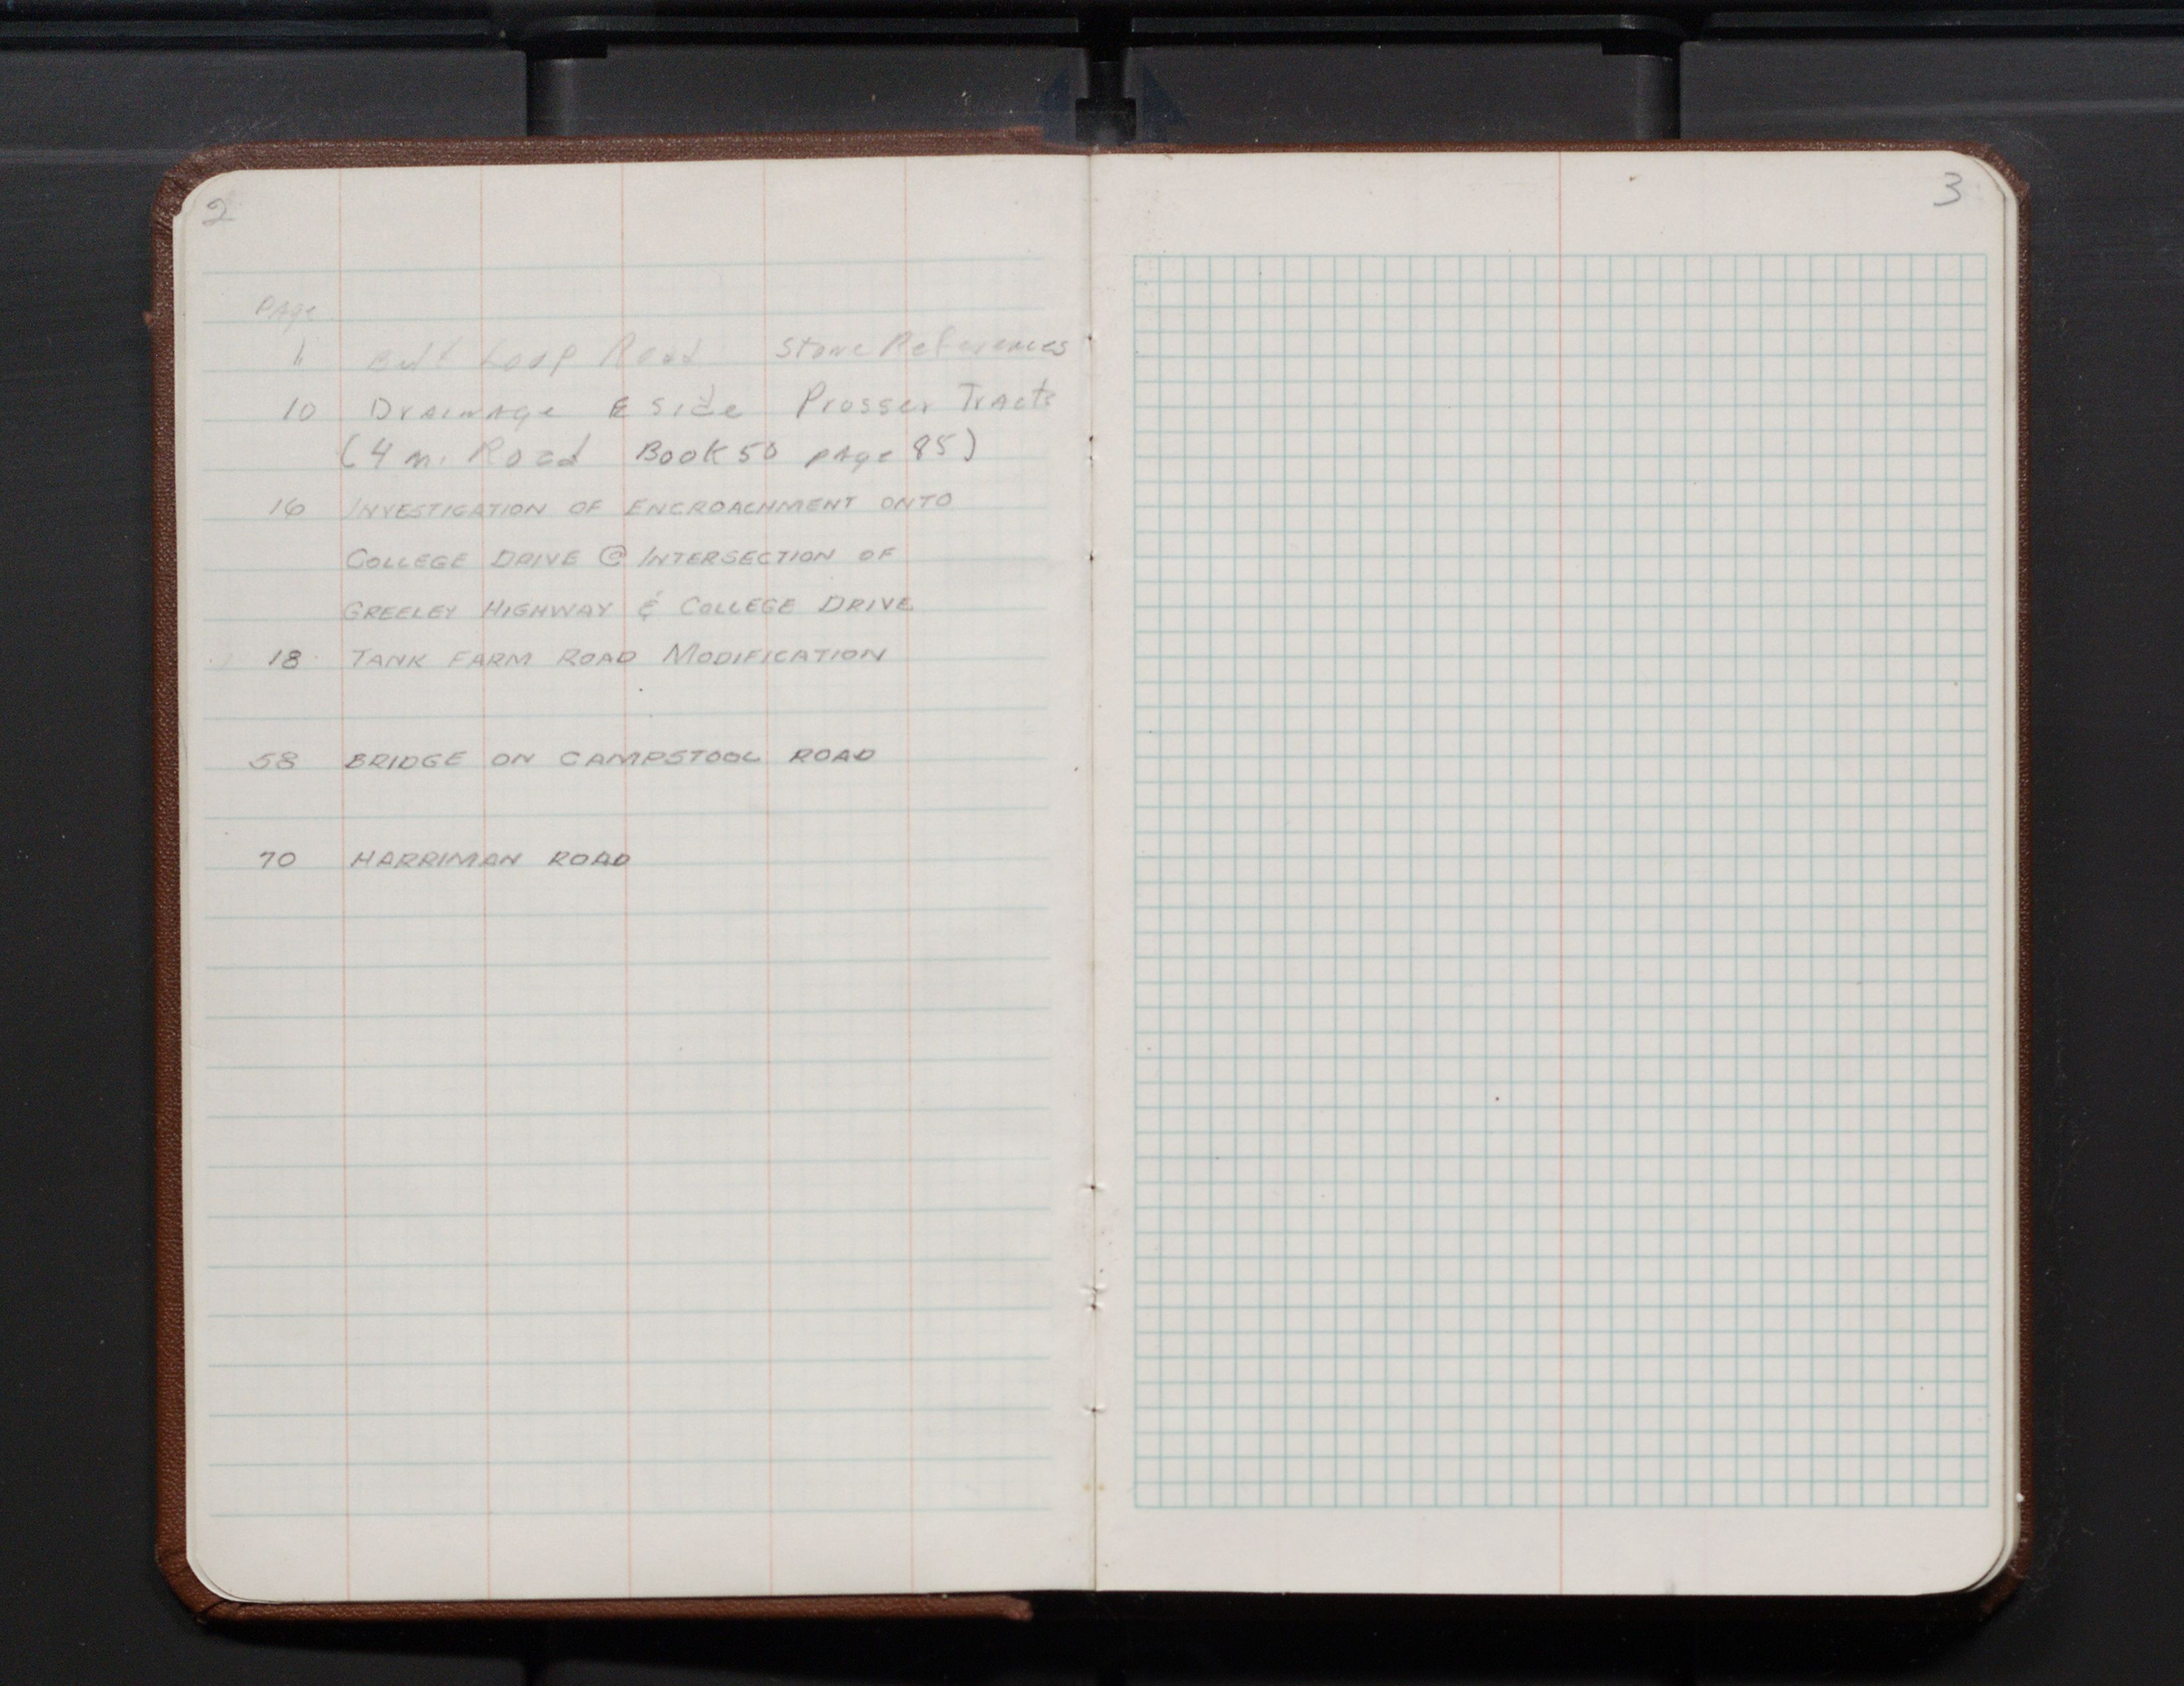 2
3
PAge
1 Belt Loop Road Stone References
10 Drainage E side Prosser Tracts
(4 m. Road Book 50 page 85)
16 INVESTIGATION OF ENCROACHMENT ONTO
COLLEGE DRIVE @ INTERSECTION OF
GREELEY HIGHWAY & COLLEGE DRIVE
18 TANK FARM ROAD MODIFICATION
58 BRIDGE ON CAMPSTOOL ROAD
70 HARRIMAN ROAD